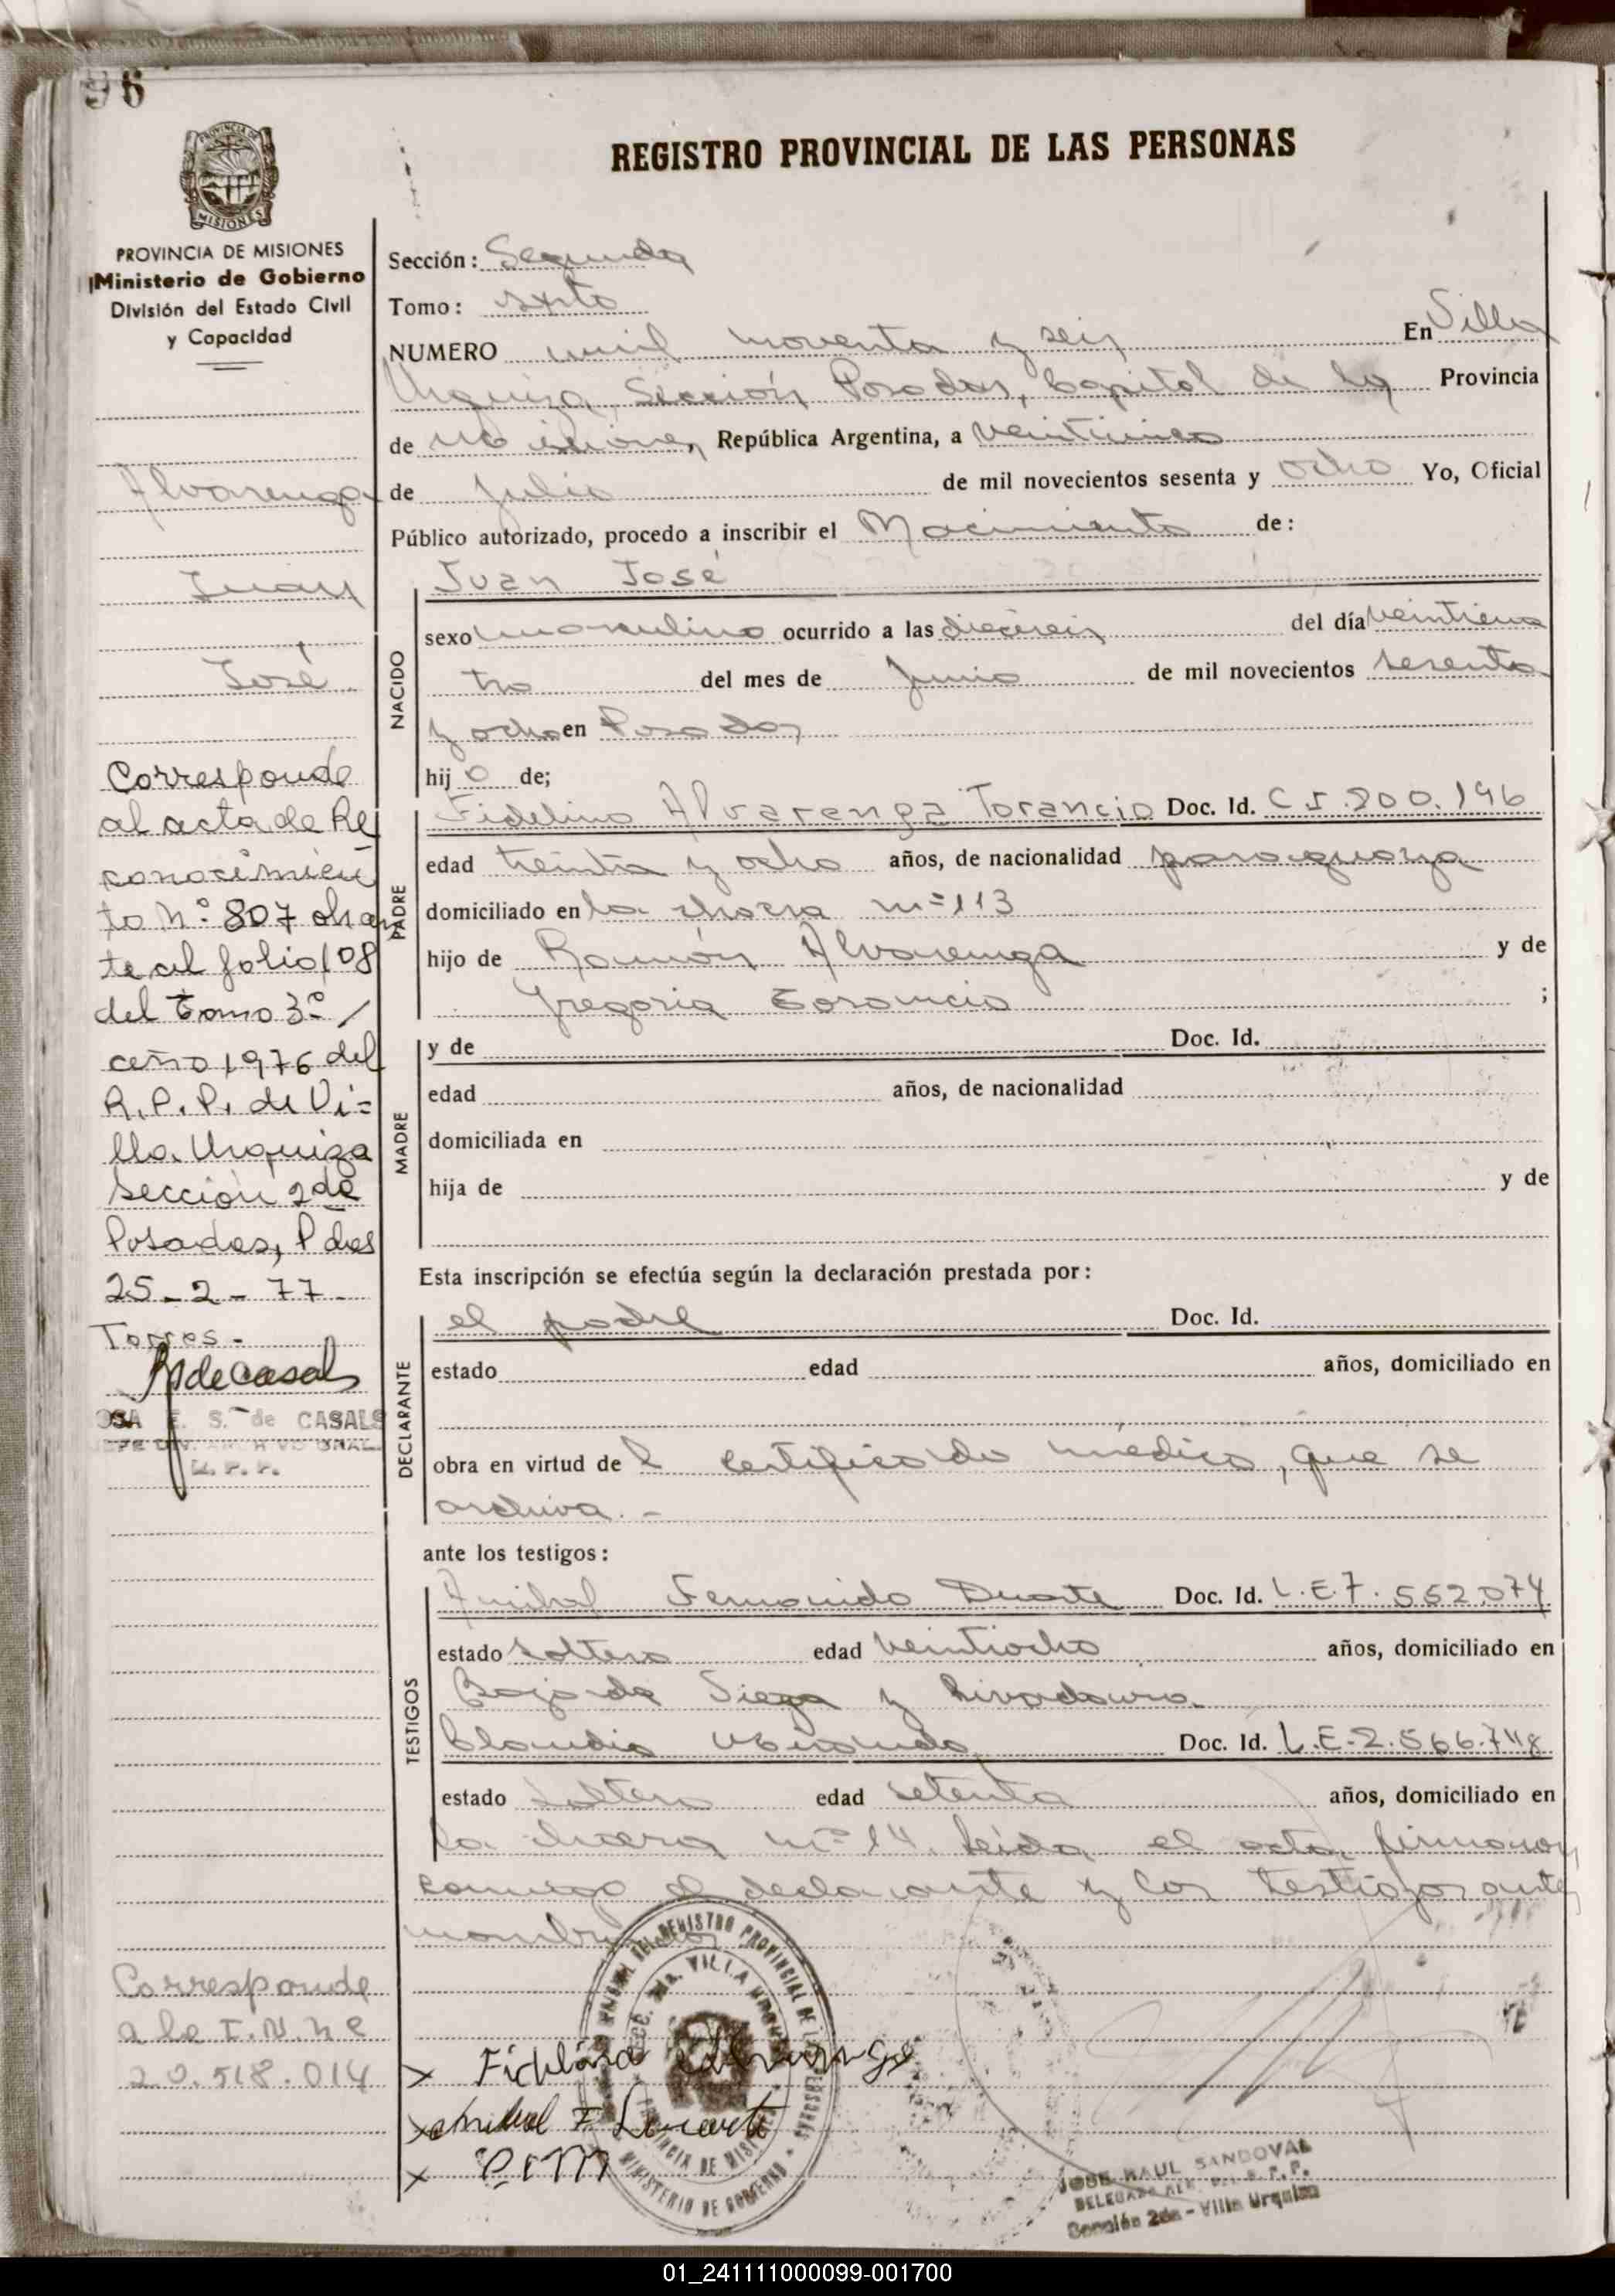 96
REGISTRO PROVINCIAL DE LAS PERSONAS
PROVINCIA DE
MISIONES
PROVINCIA DE MISIONES
Ministerio de Gobierno
División del Estado Civil
y Capacidad
Alvarenga
Juan
José
Corresponde
al acta de Re
conocimien
to Nº 807 obran
te al folio 108
del tomo 3º /
año 1976 del
R.P.P. de Vi=
lla Urquiza
Sección 2da
Posadas, Pdas
25-2-77-
Torres-
OSA E. S. de CASALS
R. P. P.
Corresponde
a la
20.518.014
Sección: Segunda
Tomo: sexto
NUMERO mil noventa y seis En Villa
Urquiza, Sección Posadas, Capital de la Provincia
de Misiones, República Argentina, a veinticinco
de Julio de mil novecientos sesenta y ocho Yo, Oficial
Público autorizado, procedo a inscribir el Nacimiento de:
NACIDO
Juan José
sexo masculino ocurrido a las dieciseis del día veinticua
tro del mes de Junio de mil novecientos sesenta
y ocho en Posadas
hijo de;
PADRE
Fidelino Alvarenga Torancio Doc. Id. C.I. 200.196
edad treinta y ocho años, de nacionalidad paraguaya
domiciliado en la chacra nº 113
hijo de Ramón Alvarenga y de
Gregoria Torancio ;
MADRE
y de Doc. Id.
edad años, de nacionalidad
domiciliada en
hija de y de
Esta inscripción se efectúa según la declaración prestada por:
DECLARANTE
el padre Doc. Id.
estado edad años, domiciliado en
obra en virtud del certificado médico, que se
archiva.-
ante los testigos:
TESTIGOS
Anibal Fernando Duarte Doc. Id. L.E.7.552.074
estado soltero edad veintiocho años, domiciliado en
Bajada Vieja y Rivadavia.
Claudio Miranda Doc. Id. L.E.2.566.748
estado soltero edad setenta años, domiciliado en
la chacra nº 14. Leída el acta, firmaron
conmigo el declarante y los testigos ante
nombrados
REGISTRO PROVINCIAL DE LAS PERSONAS
SECC. 2da. VILLA URQUIZA
PROVINCIA DE MISIONES
MINISTERIO DE GOBIERNO
x Fidelino Alvarenga
x Anibal F Duarte
x
JOSE RAUL SANDOVAL
R.P.P.
Sección 2da - Villa Urquiza
01_241111000099-001700